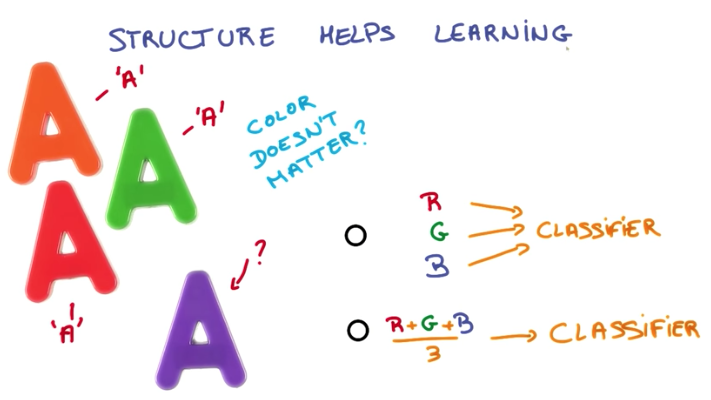 STRUCTURE HELPS LEARNING
'A'
'A'
COLOR
DOESN'T
MATTER?
'A'
?
R
G
B
CLASSIFIER
R+G+B
3
CLASSIFIER